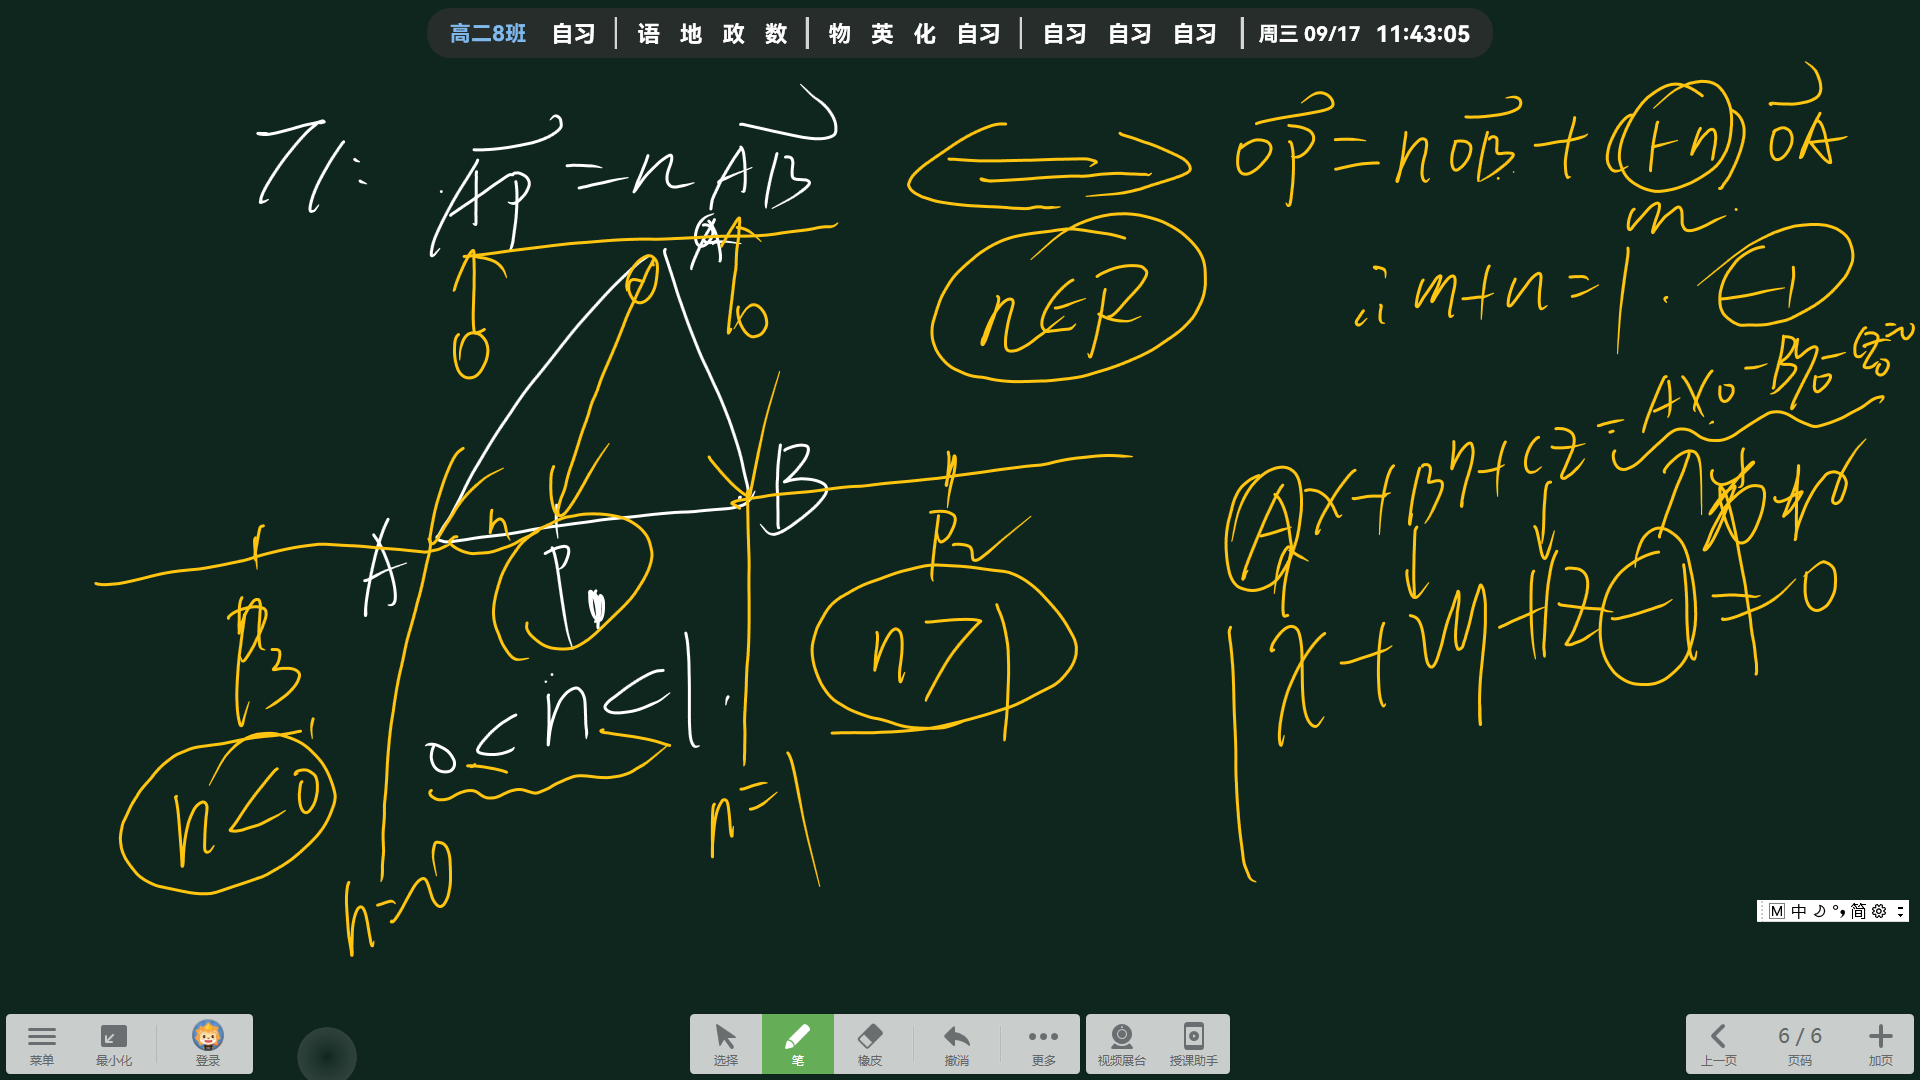 高二8班 自习 | 语 地 政 数 | 物 英 化 自习 | 自习 自习 自习 | 周三 09/17 11:43:05
T1: AP = n AB ⟺ OP = n OB + (1-n) OA
m
∴ m+n=1. —1
n∈R
O
O
b
A
B
n
P
P₂
P₃
0<n<1.
n>1
n<0
n=0
n=1
Ax+By+Cz = Ax₀-By₀-Cz₀=0
x+y+z-1=0
M 中 简
菜单 最小化 登录
选择 笔 橡皮 撤消 更多
视频展台 授课助手
6 / 6
上一页 页码 加页